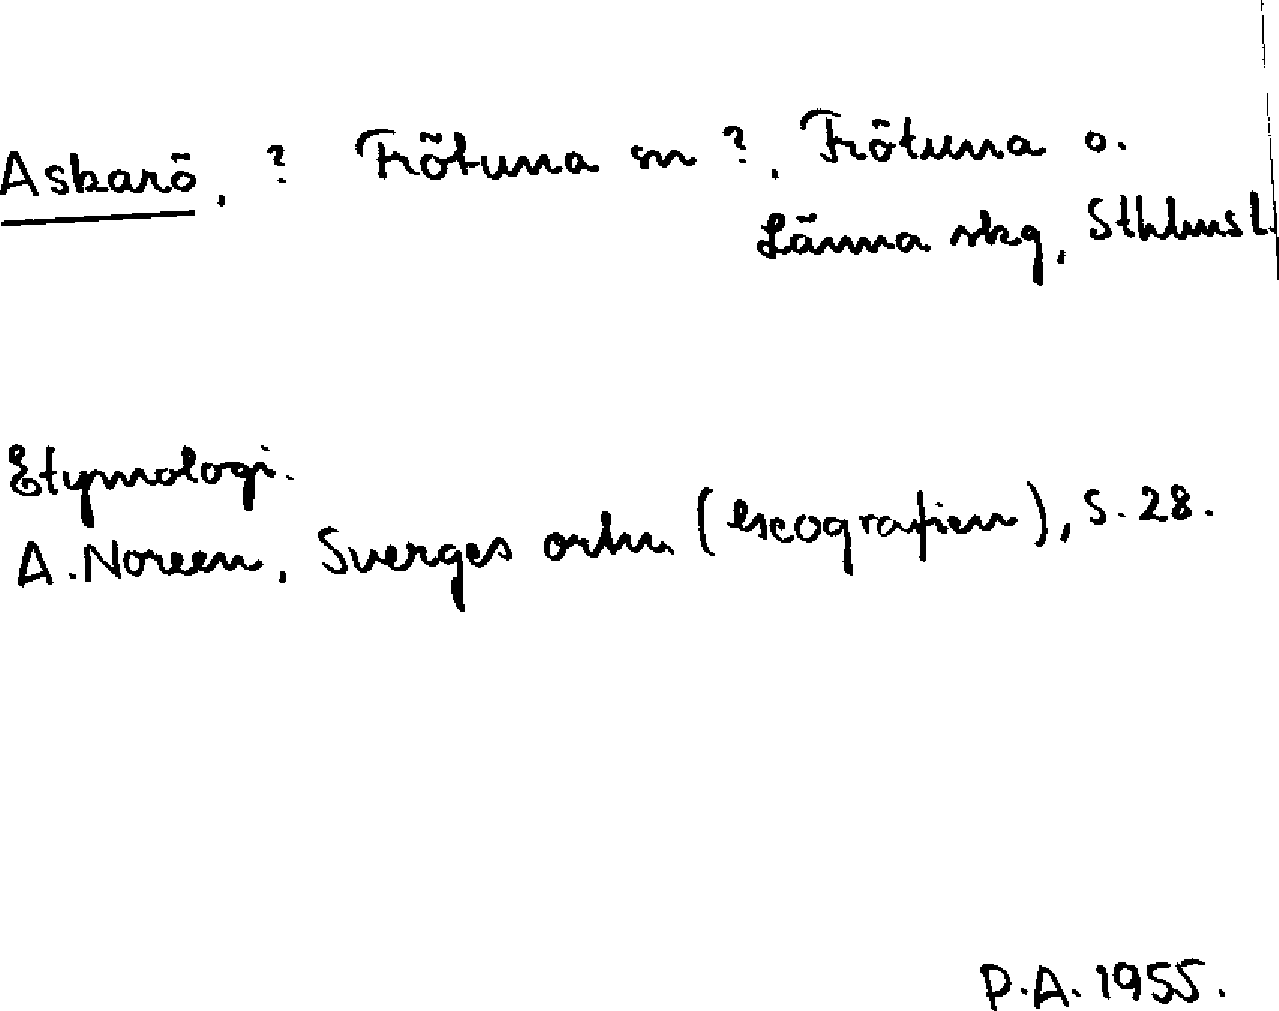 Askarö, ? Frötuna sn ?, Frötuna o.
Länna skg, Sthlms l.
Etymologi.
A. Noreen, Sverges ortn. (Geografien), S. 28.
P.A. 1955.